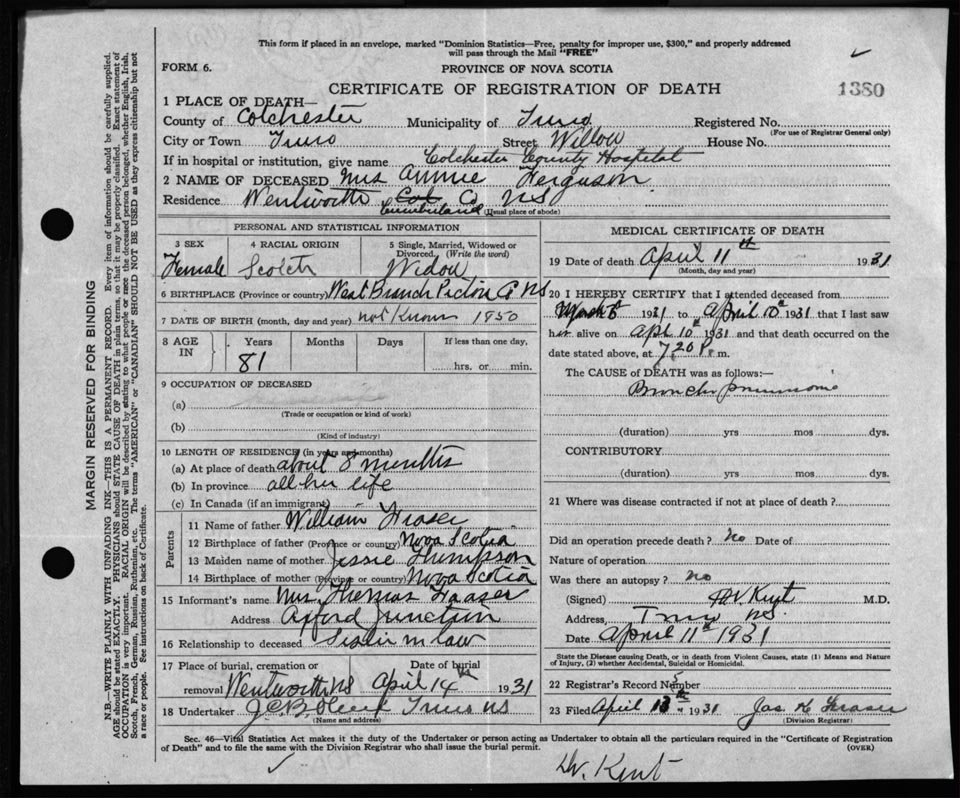 This form if placed in an envelope, marked "Dominion Statistics—Free, penalty for improper use, $300," and properly addressed
will pass through the Mail "FREE"
FORM 6.
PROVINCE OF NOVA SCOTIA
CERTIFICATE OF REGISTRATION OF DEATH
1380
1 PLACE OF DEATH—
County of Colchester Municipality of Truro Registered No.
(For use of Registrar General only)
City or Town Truro Street Willow House No.
If in hospital or institution, give name Colchester County Hospital
2 NAME OF DECEASED Mrs Annie Ferguson
Residence Wentworth Col Co NS
Cumberland (Usual place of abode)
PERSONAL AND STATISTICAL INFORMATION
3 SEX 4 RACIAL ORIGIN 5 Single, Married, Widowed or
Divorced. (Write the word)
Female Scotch Widow
6 BIRTHPLACE (Province or country) West Branch Pictou Co NS
7 DATE OF BIRTH (month, day and year) not Known 1850
8 AGE IN Years Months Days If less than one day.
81 hrs. or min.
9 OCCUPATION OF DECEASED
(a)
(Trade or occupation or kind of work)
(b)
(Kind of industry)
10 LENGTH OF RESIDENCE (in years and months)
(a) At place of death about 8 months
(b) In province all her life
(c) In Canada (if an immigrant)
Parents
11 Name of father William Fraser
12 Birthplace of father (Province or country) Nova Scotia
13 Maiden name of mother Jessie Thompson
14 Birthplace of mother (Province or country) Nova Scotia
15 Informant's name Mrs Thomas Fraser
Address Oxford Junction
16 Relationship to deceased Sister in law
17 Place of burial, cremation or Date of burial
removal Wentworth NS April 14 1931
18 Undertaker Truro NS
(Name and address)
MEDICAL CERTIFICATE OF DEATH
19 Date of death April 11th 1931
(Month, day and year)
20 I HEREBY CERTIFY that I attended deceased from
March 1931 to April 10th 1931 that I last saw
her alive on Apl 10th 1931 and that death occurred on
date stated above, at 7 20 P. m.
The CAUSE of DEATH was as follows:—
Broncho pneumonia
(duration) yrs mos dys.
CONTRIBUTORY
(duration) yrs mos dys.
21 Where was disease contracted if not at place of death?
Did an operation precede death? No Date of
Nature of operation
Was there an autopsy? no
(Signed) Kent M.D.
Address, Truro NS.
Date April 11th 1931
State the Disease causing Death, or in death from Violent Causes, state (1) Means and Nature
of Injury, (2) whether Accidental, Suicidal or Homicidal.
22 Registrar's Record Number
23 Filed April 13th 1931 Jas Fraser
(Division Registrar)
Sec. 46—Vital Statistics Act makes it the duty of the Undertaker or person acting as Undertaker to obtain all the particulars required in the "Certificate of Registration
of Death" and to file the same with the Division Registrar who shall issue the burial permit.
(OVER)
Dr. Kent
MARGIN RESERVED FOR BINDING
N.B.—WRITE PLAINLY WITH UNFADING INK—THIS IS A PERMANENT RECORD. Every item of information should be carefully supplied.
AGE should be stated EXACTLY. PHYSICIANS should STATE CAUSE OF DEATH in plain terms, so that it may be properly classified. Exact statement of
OCCUPATION is very important. RACIAL ORIGIN will be described by stating to what people or race the deceased person belonged, whether English, Irish,
Scotch, French, German, Russian, Ruthenian, etc. The terms "AMERICAN" or "CANADIAN" SHOULD NOT BE USED as they express citizenship but not
a race or people. See instructions on back of Certificate.